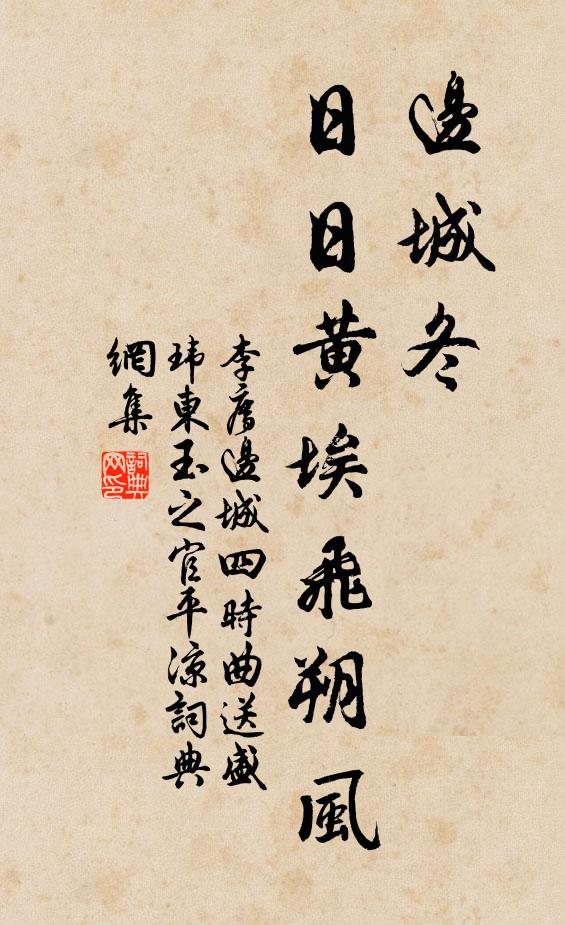 邊城冬
日日黄埃飛朔風
李廌邊城四時曲送盛
瑋東玉之官平涼詞典
網集
詞典
网印